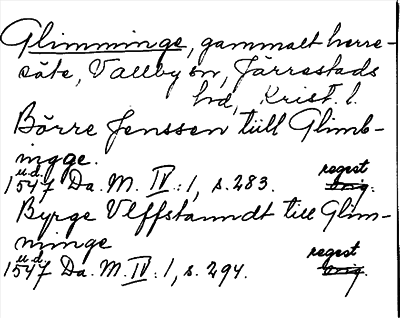 Glimminge, gammalt herre-
säte, Vallby sn, Järrestads
hd, Krist. l.
Börre Jenssen tiill Glimb-
ningge.
u.d. regest
1547 Da. M. IV : 1, s. 283. orig.
Byrge Ulffstanndt till Glim-
minge
u.d. regest
1547 Da. M. IV : 1, s. 294. orig.